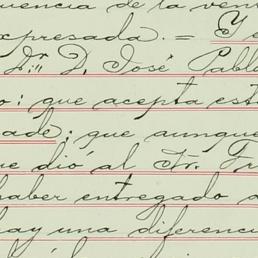 uencia de la ven
xpresada. = Ye
Dr. D. José Pabl
o: que acepta est
ade; que aunque
ue dió al Sr. Fr
haber entregado a
hay una diferenci